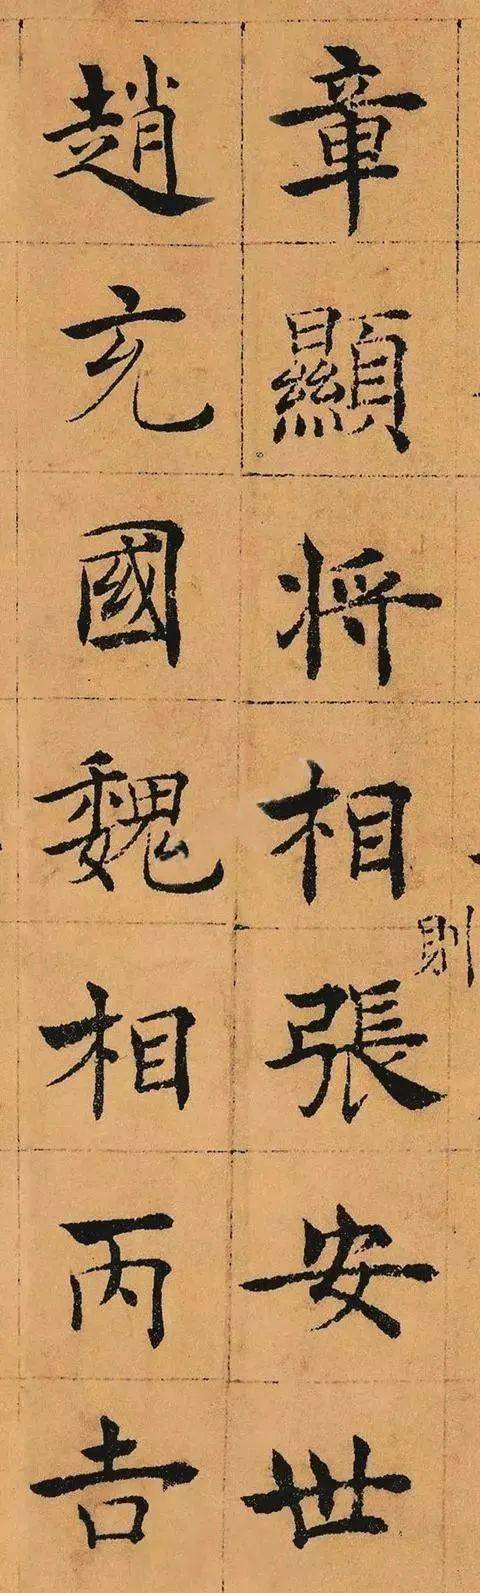 章顯將相張安世
則
趙充國魏相丙吉